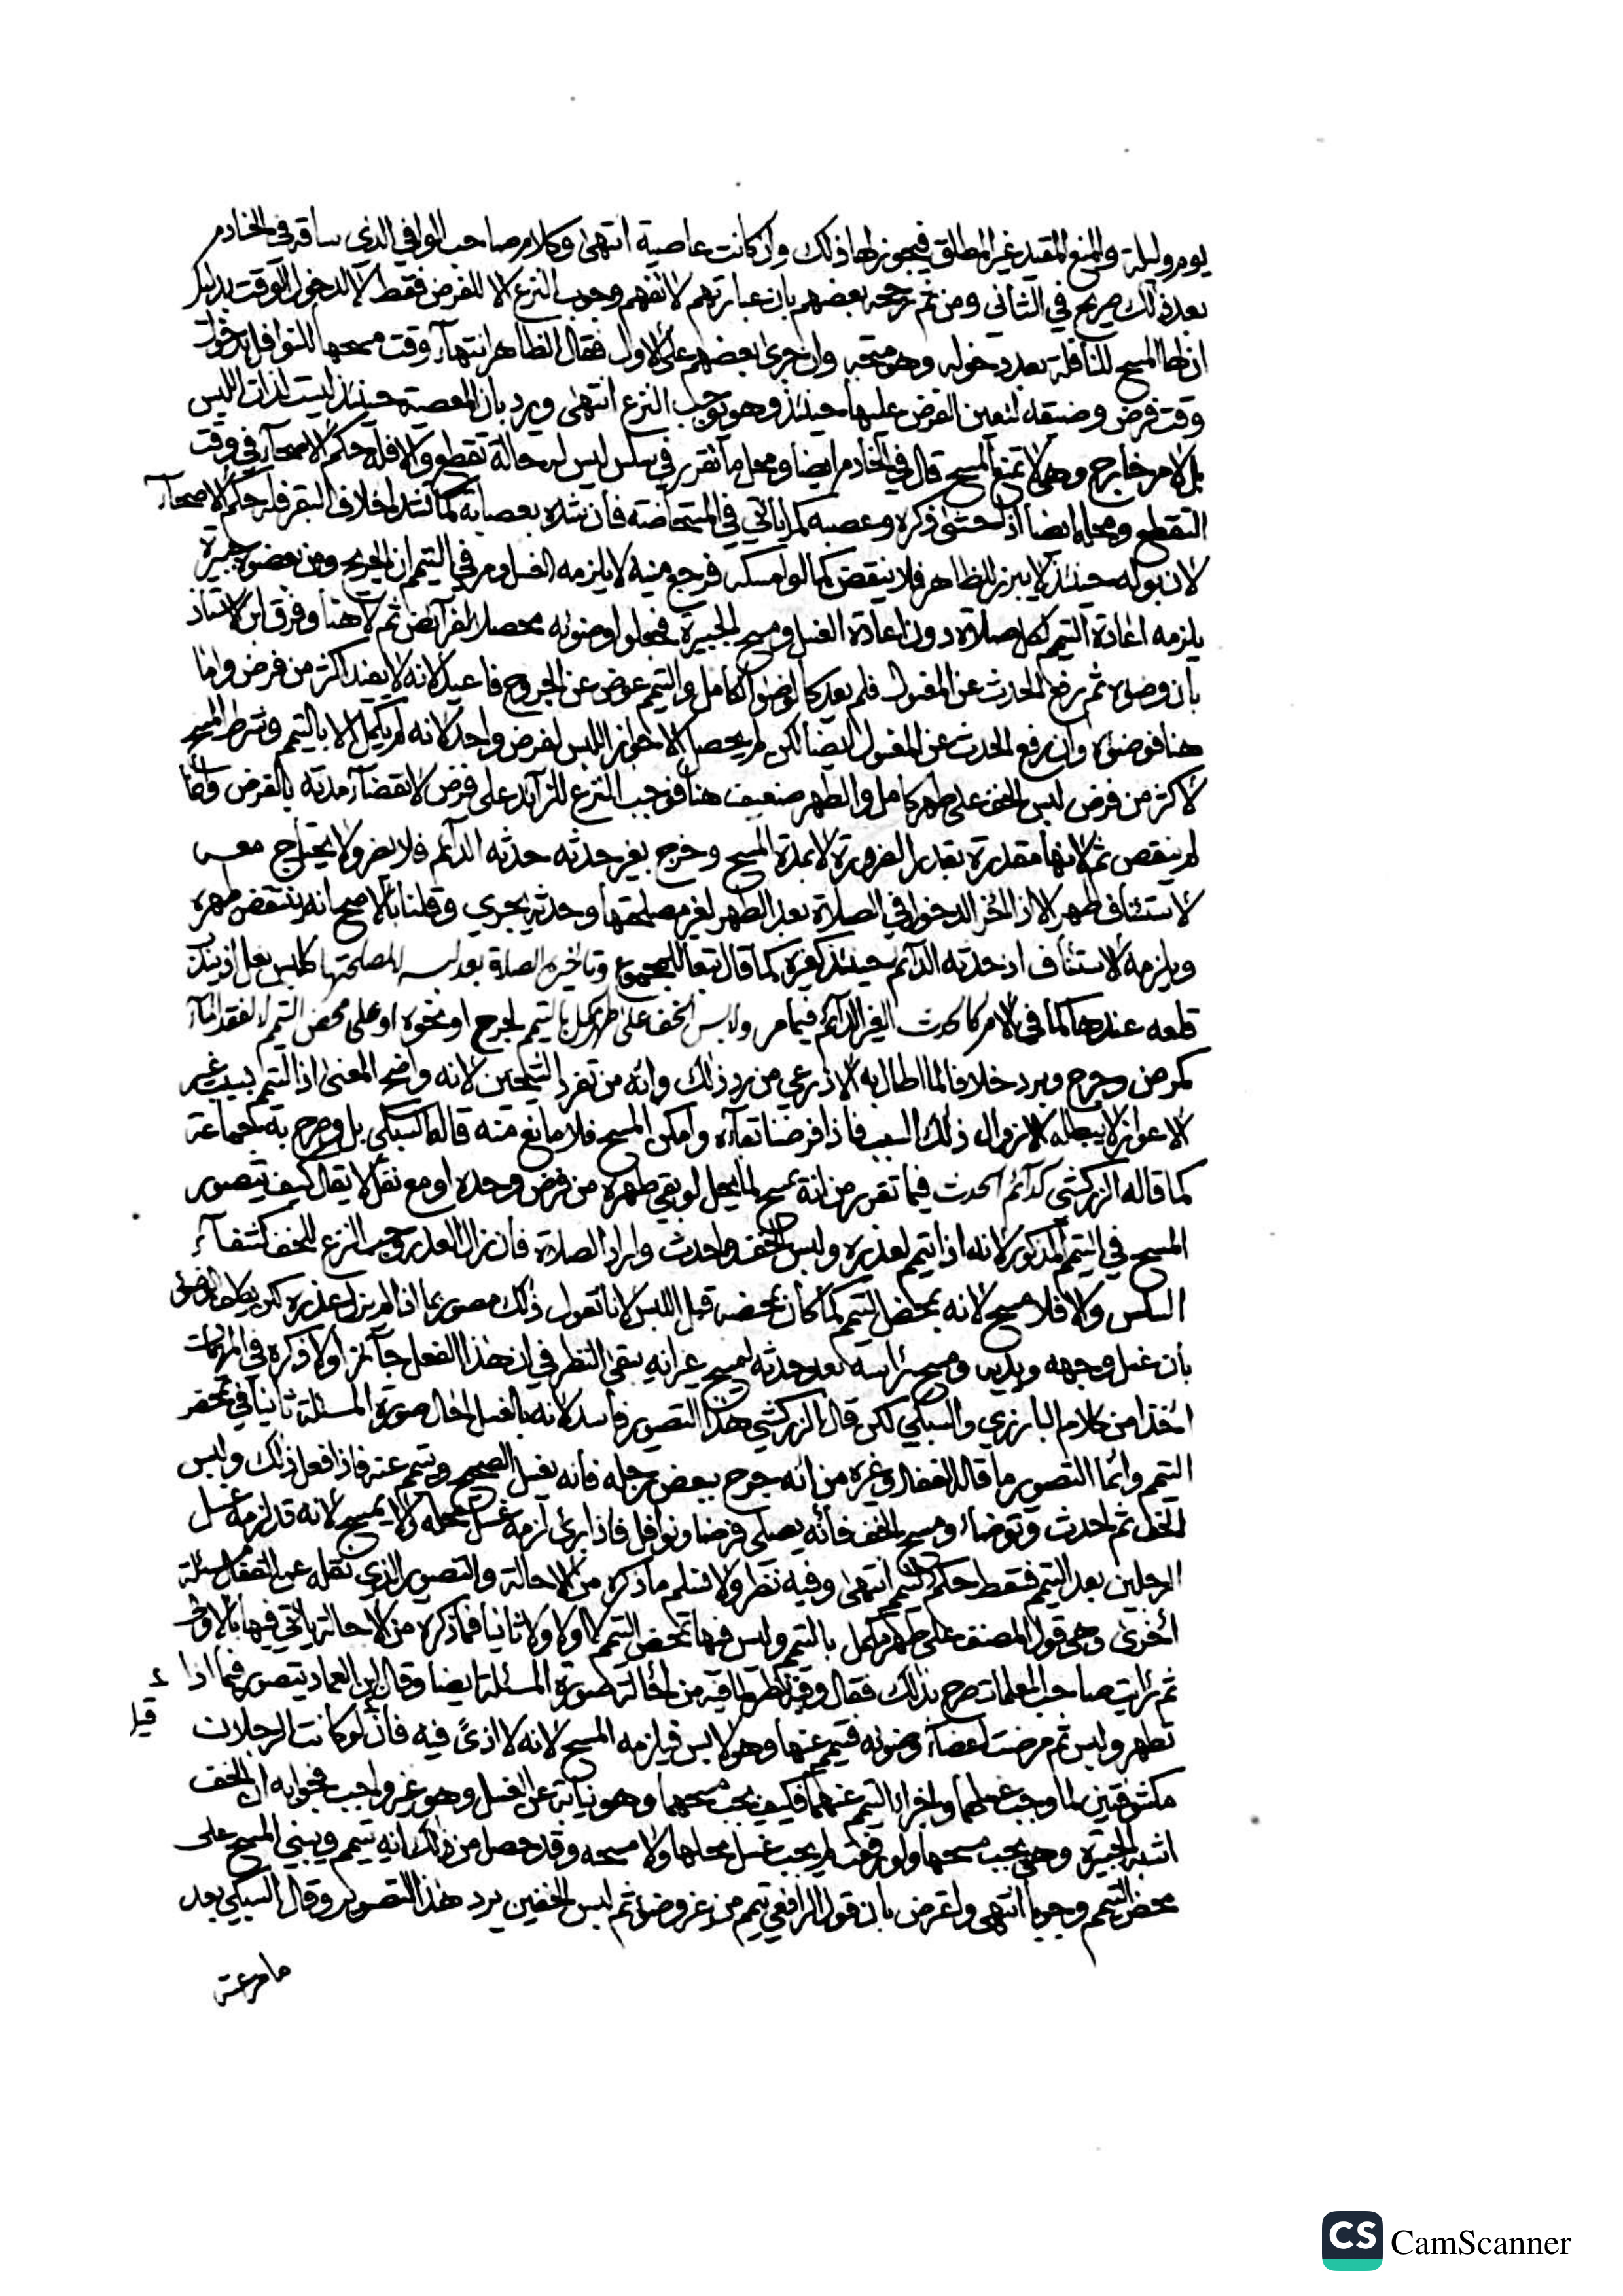 يوم وليلة والمنع المقيد غير المطلق فيجوز لها ذلك وان كانت عاصية انتهى وكلام صاحب الوافي الذي ساقه في الخادم
بعد ذلك صريح في الثاني ومن ثم رجحه بعضهم بان عبارتهم لا تفهم وجوب النزع الا للفرض فقط لا لدخول الوقت بدليل
ان لها المسح للنافلة بعد دخوله وهو متجه وان جرى بعضهم على الاول فقال الظاهر انتهاء وقت مسحها للنوافل بدخول
وقت فرض وضيقه لتعين الفرض عليها حينئذ وهو يوجب النزع انتهى ويرد بان المعصية حينئذ ليست لذات اللبس
بل لامر خارج وهي لا تمنع المسح قال في الخادم ايضا ومحل ما تقرر في سلس ليس له حالة تقطع والا فله حكم الاصحاء في وقت
التقطع ومحله ايضا اذا حشى ذكره وعصبه كما ياتي في المستحاضة فان شده بعصابة كما تشد اخلاف البقر فله حكم الاصحاء
لان بوله حينئذ لا يبرز للظاهر فلا ينقض كما لو امسك فرجع منيه لا يلزمه الغسل ومر في التيمم ان الجريح ومن بعضوه جبيرة
يلزمه اعادة التيمم لكل صلاة دون اعادة الغسل ومسح الجبيرة فجعلوا وضوئه محصلا لفرائض ثم لا هنا وفرق ابن الاستاذ
بان وضوءه ثم يرفع الحدث عن المغسول فلم يعد كالوضوء الكامل والتيمم عوض عن الجروح فاعيد لانه لا يفيد اكثر من فرض واما
هنا فوضوءه وان رفع الحدث عن المغسول ايضا لكن لم يحصل الا جواز اللبس لفرض واحد لانه لم يكمل الا بالتيمم وشرط المسح
لاكثر من فرض لبس الخف على طهر كامل والطهر ضعيف هنا فوجب النزع للزائد على فرض لانقضاء مدته بالفرض وانما
لم ينقص ثم لانها مقدرة بقدر الضرورة لا بمدة المسح وخرج بغير حدثه حدثه الدائم فلا يضر ولا يحتاج معه
لاستئناف طهر الا اذا اخر الدخول في الصلاة بعد الطهر لغير مصلحتها وحدثه يجري وقلنا بالاصح انه ينتقض طهره
ويلزمه الاستئناف اذ حدثه الدائم حينئذ كغيره كما قال تبعا للمجموع وتاخيره الصلاة بعد لبسه لمصلحتها كلبس نعل اذ يندب
قلعه عندها كما في الام كالحدث الغير الدائم فيما مر ولابس الخف على طهر كمل بالتيمم لجرح او نحوه او على محض التيمم لا لفقد الماء
كمرض وجرح وبرد خلافا لما اطال به الاذرعي من رد ذلك وانه من تفرد الشيخين لانه واضح المعنى اذ التيمم بسبب غير
الاعواز لا يبطله الا زوال ذلك السبب فاذا فرضنا بقاءه وامكن المسح فلا مانع منه قاله السبكي بل وصرح به جماعة
كما قاله الزركشي كدائم الحدث فيما تقرر من انه يمسح لما يحل لو بقي طهره من فرض وحده او مع نفل لا يقال كيف يتصور
المسح في التيمم المذكور لانه اذا تيمم لعذره ولبس الخف واحدث واراد الصلاة فان زال العذر وجب النزع للخف كشفاء
السلس والا فلا مسح لانه محض التيمم كما كان محضه قبل اللبس لانا نقول ذلك مصور بما اذا لم يزل عذره لكن تكلف الوضوء
بان غسل وجهه ويديه ومسح رأسه بعد حدثه ليمسح غير انه يبقى النظر في ان هذا الفعل جائز اولا ذكره في المهمات
اخذا من كلام البارزي والسبكي لكن قال الزركشي هذا التصوير فاسد لانه بالغسل احال صورة المسئلة ثانيا في محض
التيمم وانما التصوير ما قاله القفال وغيره من انه جرح ببعض رجله فانه يغسل الصحيح ويتيمم عنه فاذا فعل ذلك ولبس
الخف ثم احدث وتوضأ ومسح الخف فانه يصلي فرضا ونوافل فاذا برئ لزمه غسل محله ولا يمسح لانه قد لزمه غسل
الرجلين بعد التيمم فسقط حكم التيمم انتهى وفيه نظر ولا نسلم ما ذكره من الاحالة والتصوير الذي نقله عن القفال مسئلة
اخرى وهي قول المصنف على طهر كمل بالتيمم وليس فيها تمحض التيمم لا اولا ولا ثانيا فما ذكره من الاحالة ياتي فيها بالاولى
ثم رأيت صاحب المعلمات صرح بذلك فقال وفيه نظر لما فيه من احالة صورة المسئلة ايضا وقال ابن العماد يتصور فيما اذا
قيل
تطهر ولبس ثم مرضت اعضاء وضوئه فتيمم عنها وهو لابس فيلزمه المسح لانه لا اذى فيه فان لو كانت الرجلان
مكشوفتين لما وجب غسلهما واجزا التيمم عنهما فكيف يجب مسحهما وهو نيابة عن الغسل وهو غير واجب فجوابه ان الخف
اشبه الجبيرة وهي يجب مسحها ولو رفعت لم يجب غسل محلها ولا مسحه وقد حصل من ذلك انه تيمم ويبني المسح على
محض التيمم وجوبا انتهى واعترض بان قول الرافعي تيمم من غير وضوء ثم لبس الخفين يرد هذا التصوير وقال السبكي بعد